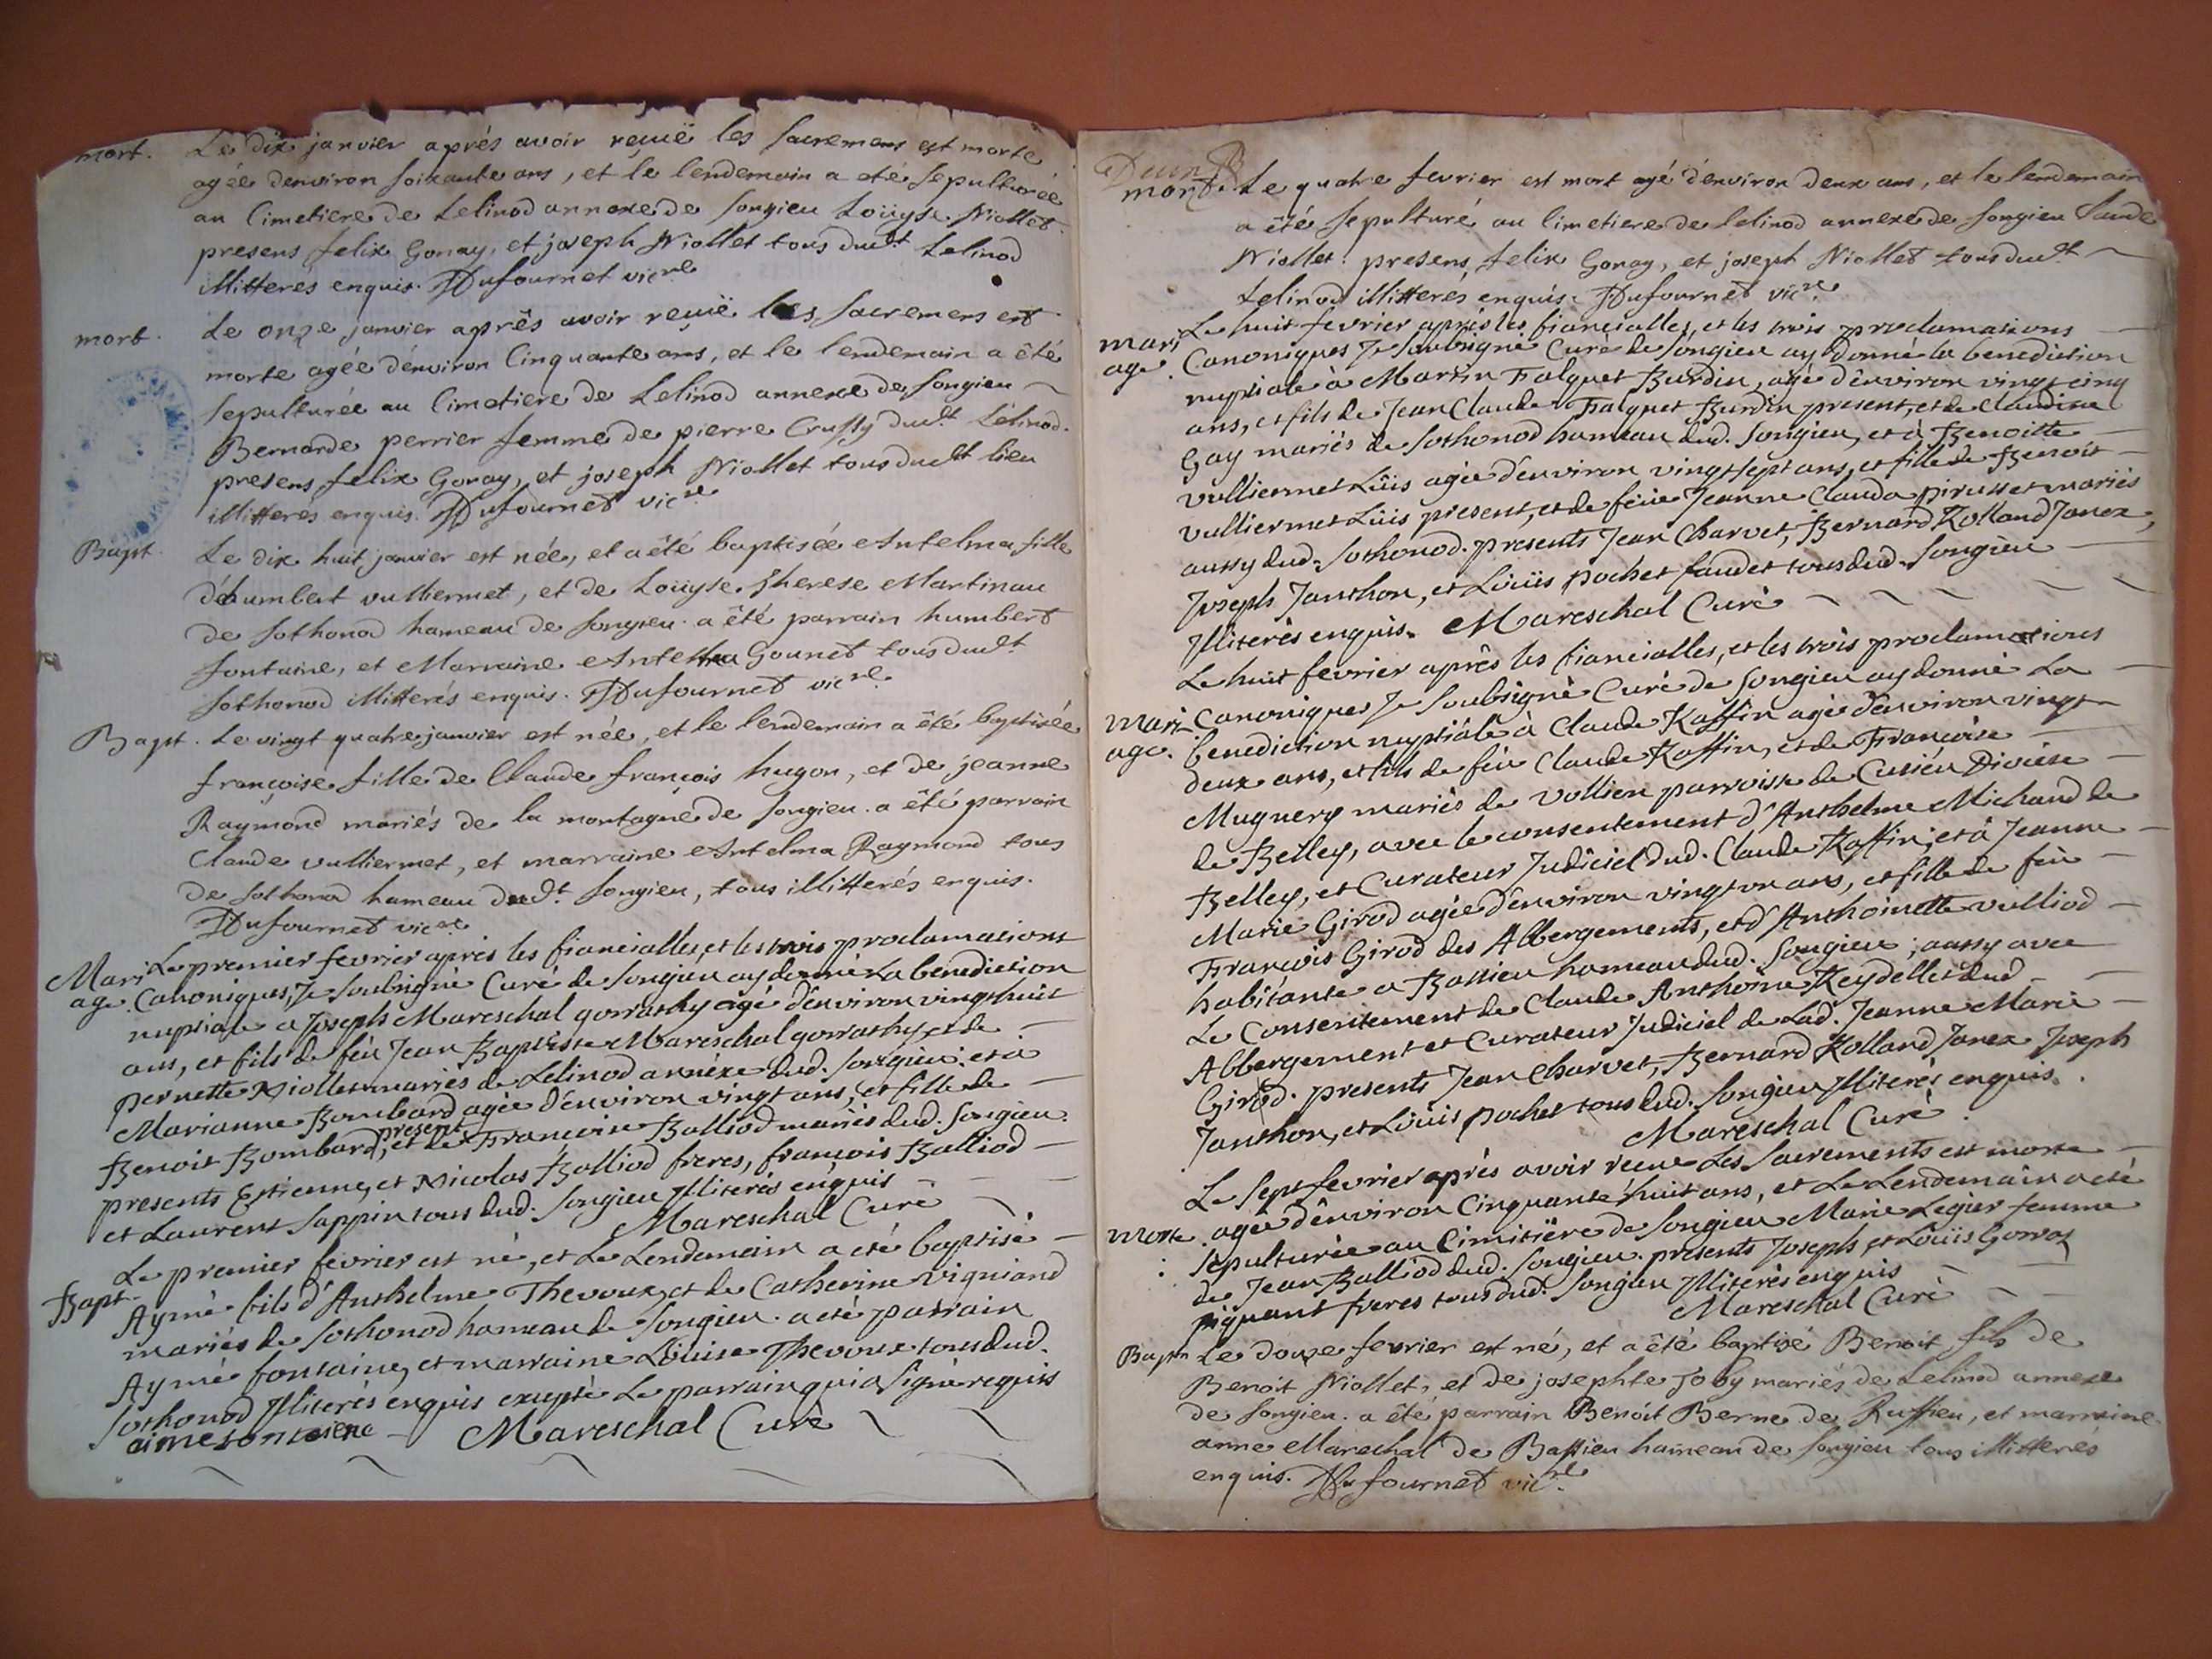 mort. Le dix janvier aprés avoir reçuë les sacremens est morte
agée d'environ soixante ans, et le lendemain a été sepulturée
au Cimetiere de Lelinod annexe de songieu Loüyse Niollet.
presens felix Gonay, et joseph Niollet tous dudt Lelinod
illitterés enquis. Dufournet vicre
mort. Le onze janvier aprês avoir reçuë les sacremens est
morte agée d'environ Cinquante ans, et le lendemain a êté
sepulturée au Cimetiere de Lelinod annexe de songieu
Bernarde perrier femme de pierre Crussy dudt Lélinod.
presens felix Gonay, et joseph Niollet tous dudt lieu
illitterés enquis. Dufournet vicre
Bapt. Le dix huit janvier est née, et a êté baptisée Antelma fille
d'humbert vulliermet, et de Loüyse Therese Martinau
de sothonod hameau de songieu. a êté parrain humbert
fontaine, et Marraine Antelma Gounet tous dudt
sothonod illitterés enquis. Dufournet vicre
Bapt. Le vingt quatre janvier est née, et le lendemain a êté baptisée
françoise fille de Claude françois hugon, et de jeanne
Raymond mariés de la montagne de songieu. a êté parrain
Claude vulliermet, et marraine Antelma Raymond tous
de sothonod hameau dudt songieu, tous illitterés enquis.
Dufournet vicre
Mari Le premier fevrier aprés les fiancialles, et les trois proclamations
age. Canoniques, Je soubsigné Curé de songieu ay donné La benediction
nuptiale a Joseph Mareschal gorrathy agé d'environ vingt huit
ans, et fils de feu Jean Baptiste Mareschal gorrathy, et de
pernette Niollet mariés de Lelinod annéxe dud. songieu; et à
Marianne Bombard agée d'environ vingt ans, et fille de
Benoit Bombard, present et de Françoise Balliod mariés dud. songieu.
presents Estienne, et Nicolas Balliod freres, françois Balliod
et Laurent sappin tous dud. songieu Jlliterés enquis
Mareschal Curé
Le premier fevrier est né, et Le Lendemain a eté baptisé
Bapt. Aymé fils d'Anthelme Thevoux, et de Catherine vigniand
mariés de sothonod hameau de songieu. a eté parrain
Aymé fontaine, et marraine Loüise Thevoux tous dud.
sothonod Jlliterés enquis excepté Le parrain qui a signé requis
aimé fontaine Mareschal Curé
Deux
mort. Le quatre fevrier est mort agé d'environ deux ans, et le lendemain
a êté sepulturé au Cimetiere de lelinod annexe de songieu Claude
Niollet. presens felix Gonay, et joseph Niollet tous dudt
Lelinod illitterés enquis. Dufournet vicre
Le huit fevrier aprés les fiancialles, et les trois proclamations
mari Canoniques Je soubsigné Curé de songieu ay donné la benediction
age. nuptiale à Martin Falquet Burdin, agé d'environ vingt cinq
ans, et fils de Jean Claude Falquet Burdin present, et de Claudine
Gay mariés de sothonod hameau dud. songieu, et à Benoitte
vulliermet Lüis agée d'environ vingt sept ans, et fille de Benoit
vulliermet Lüis present, et de feüe Jeanne Clauda pirusset mariés
aussy dud. sothonod. presents Jean Charvet, Bernard Rolland Janex,
Joseph Janthon, et Loüis pochet faudet tous dud. songieu
Jlliterés enquis. Mareschal Curé
Le huit fevrier aprês les fiancialles, et les trois proclamations
mari Canoniques Je soubsigné Curé de songieu ay donné La
age. benediction nuptiale à Claude Raffin agé d'environ vingt
deux ans, et fils de feu Claude Raffin, et de Françoise
Mugnery mariés de vollien parroisse de Cusieu Diocése
de Belley, avec le consentement d'Anthelme Michaud de
Belley, et Curateur Judiciel dud. Claude Raffin; et à Jeanne
Marie Girod agée d'environ vingt un ans, et fille de feu
François Girod des Abbergements, et d'Anthoinette vulliod
habitante a Bassieu hameau dud. songieu; aussy avec
Le Consentement de Claude Anthoine Reydellet dud
Abbergement et Curateur Judiciel de Lad. Jeanne Marie
Girod. presents Jean Charvet, Bernard Rolland Janex Joseph
Janthon, et Loüis pochet tous dud. songieu Jlliterés enquis.
Mareschal Curé
Le sept fevrier aprés avoir recue Les sacrements est morte
morte. agée d'environ Cinquante huit ans, et Le Lendemain a eté
sepulturée au Cimitiére de songieu Marie Legier femme
de Jean Balliod dud. songieu. presents Joseph, et Loüis Gorras
piquant freres tous dud. songieu Jlliterés enquis
Mareschal Curé
Bapt. Le douze fevrier est né, et a êté baptisé Benoit fils de
Benoit Niollet, et de josephte Joby mariés de Lelinod annexe
de songieu. a êté parrain Benoit Berne de Ruffieu, et marraine
anne Marechal de Bassieu hameau de songieu tous illitterés
enquis. Dufournet vicre